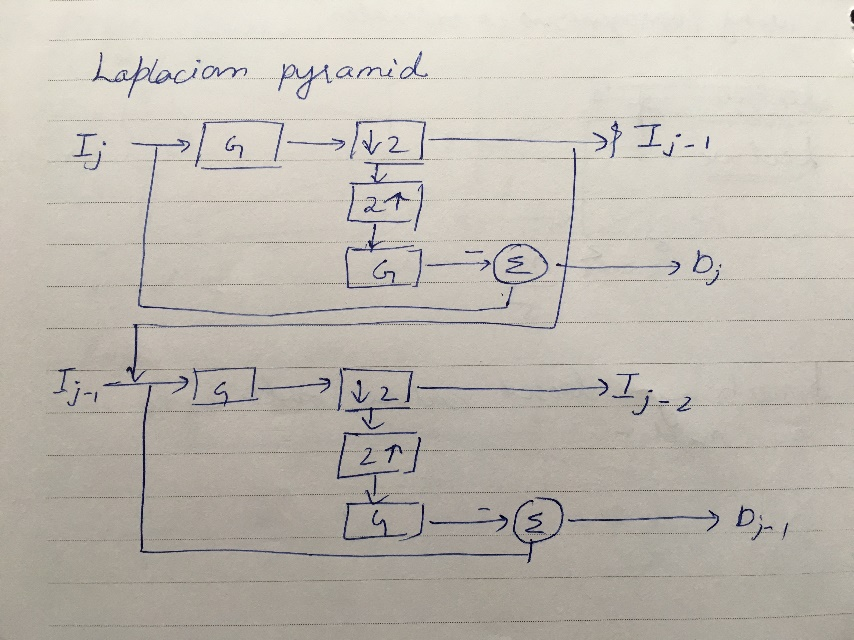 Laplacian pyramid
Ij G ↓2 Ij-1
2↑
G - Σ Dj
Ij-1 G ↓2 Ij-2
2↑
G - Σ Dj-1